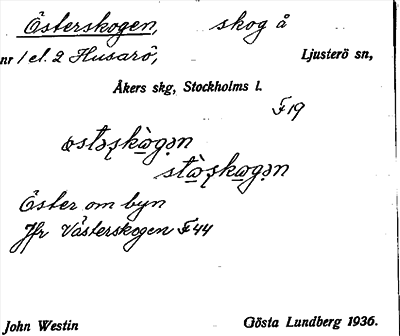 Österskogen, skog å
nr 1 el. 2 Husarö, Ljusterö sn,
Åkers skg, Stockholms l.
F 19
Öster om byn
Jfr Västerskogen F 44
John Westin Gösta Lundberg 1936.